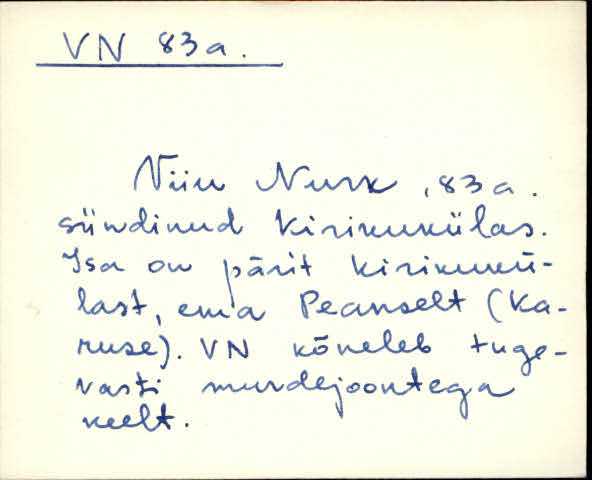 VN 83a.
Viiu Nurk, 83 a.
sündinud Kirikukülas.
Isa on pärit Kirikukü-
last, ema Peanselt (Ka-
ruse). VN kõneleb tuge-
vasti murdejoontega
keelt.